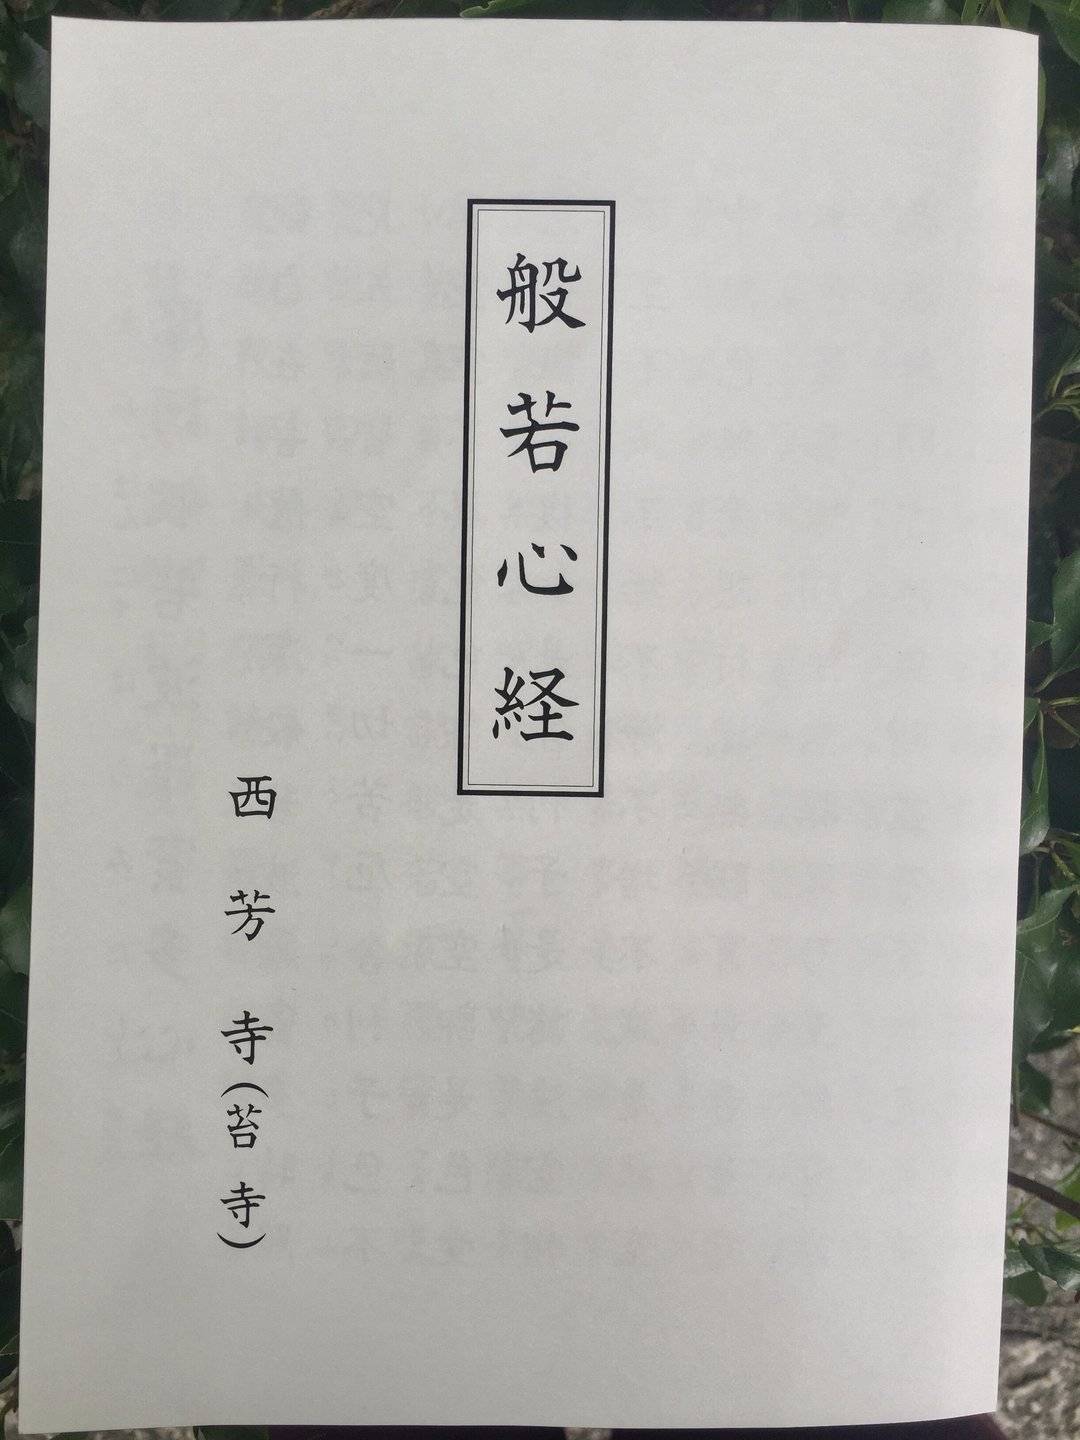 般若心経
西芳寺(苔寺)